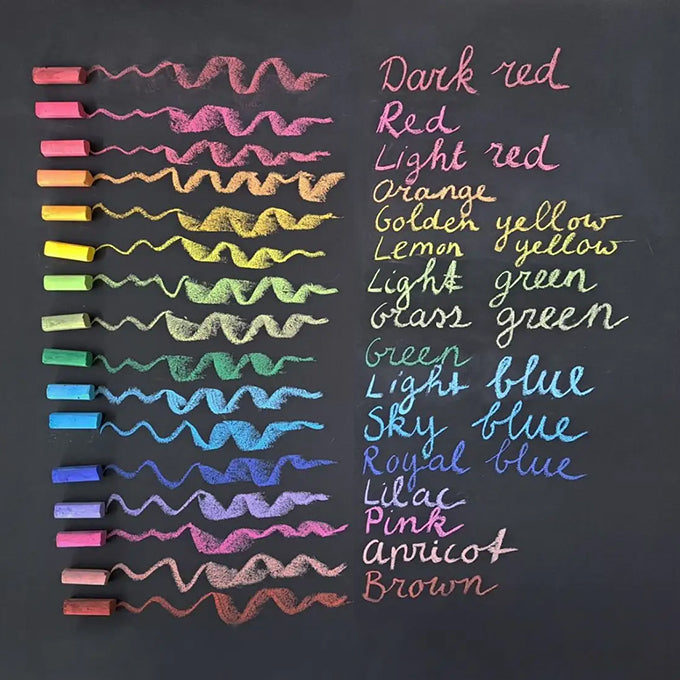 Dark red
Red
Light red
Orange
Golden yellow
Lemon yellow
Light green
Grass green
Green
Light blue
Sky blue
Royal blue
Lilac
Pink
Apricot
Brown